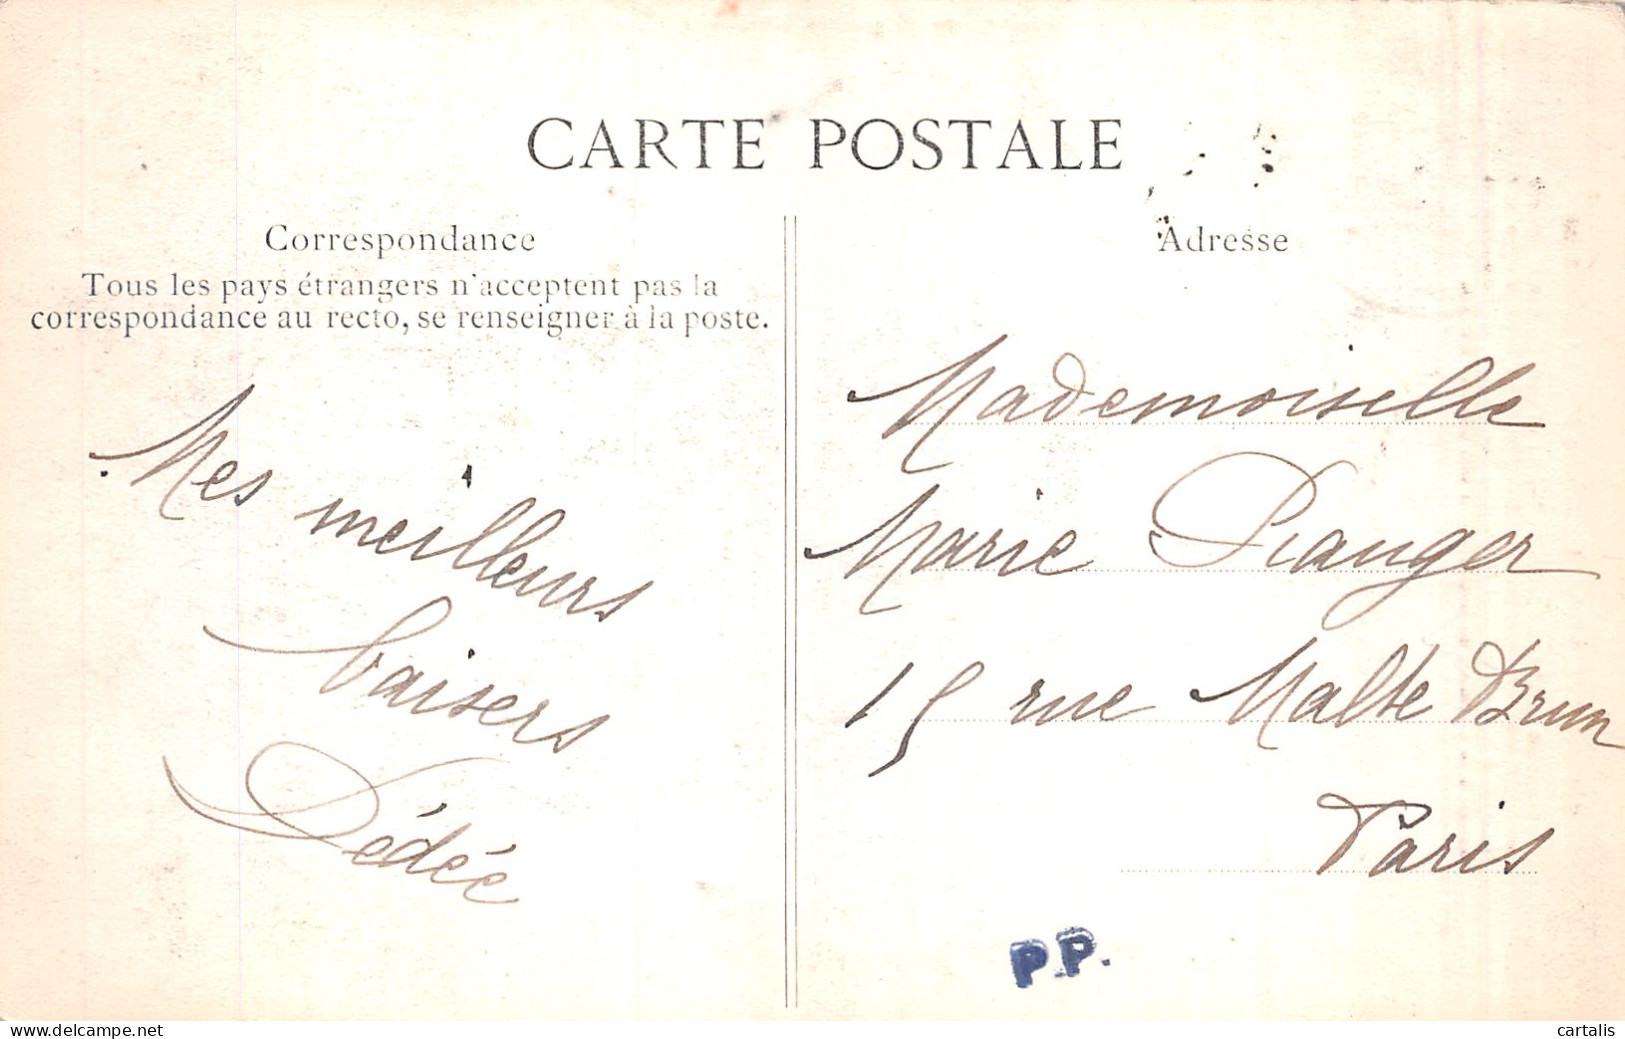 CARTE POSTALE
Correspondance
Tous les pays étrangers n'acceptent pas la
correspondance au recto, se renseigner à la poste.
Mes meilleurs
baisers
Dédée
Adresse
Mademoiselle
Marie Ranger
15 rue Malte Brun
Paris
PP.
delcampe.net
cartalis